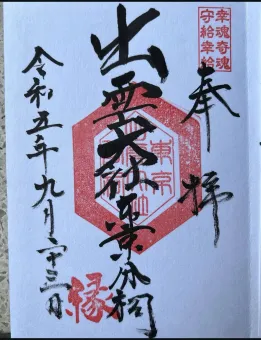 幸魂奇魂
守給幸給
奉拝
出雲大社東京分祠
縁
令和五年九月二十三日